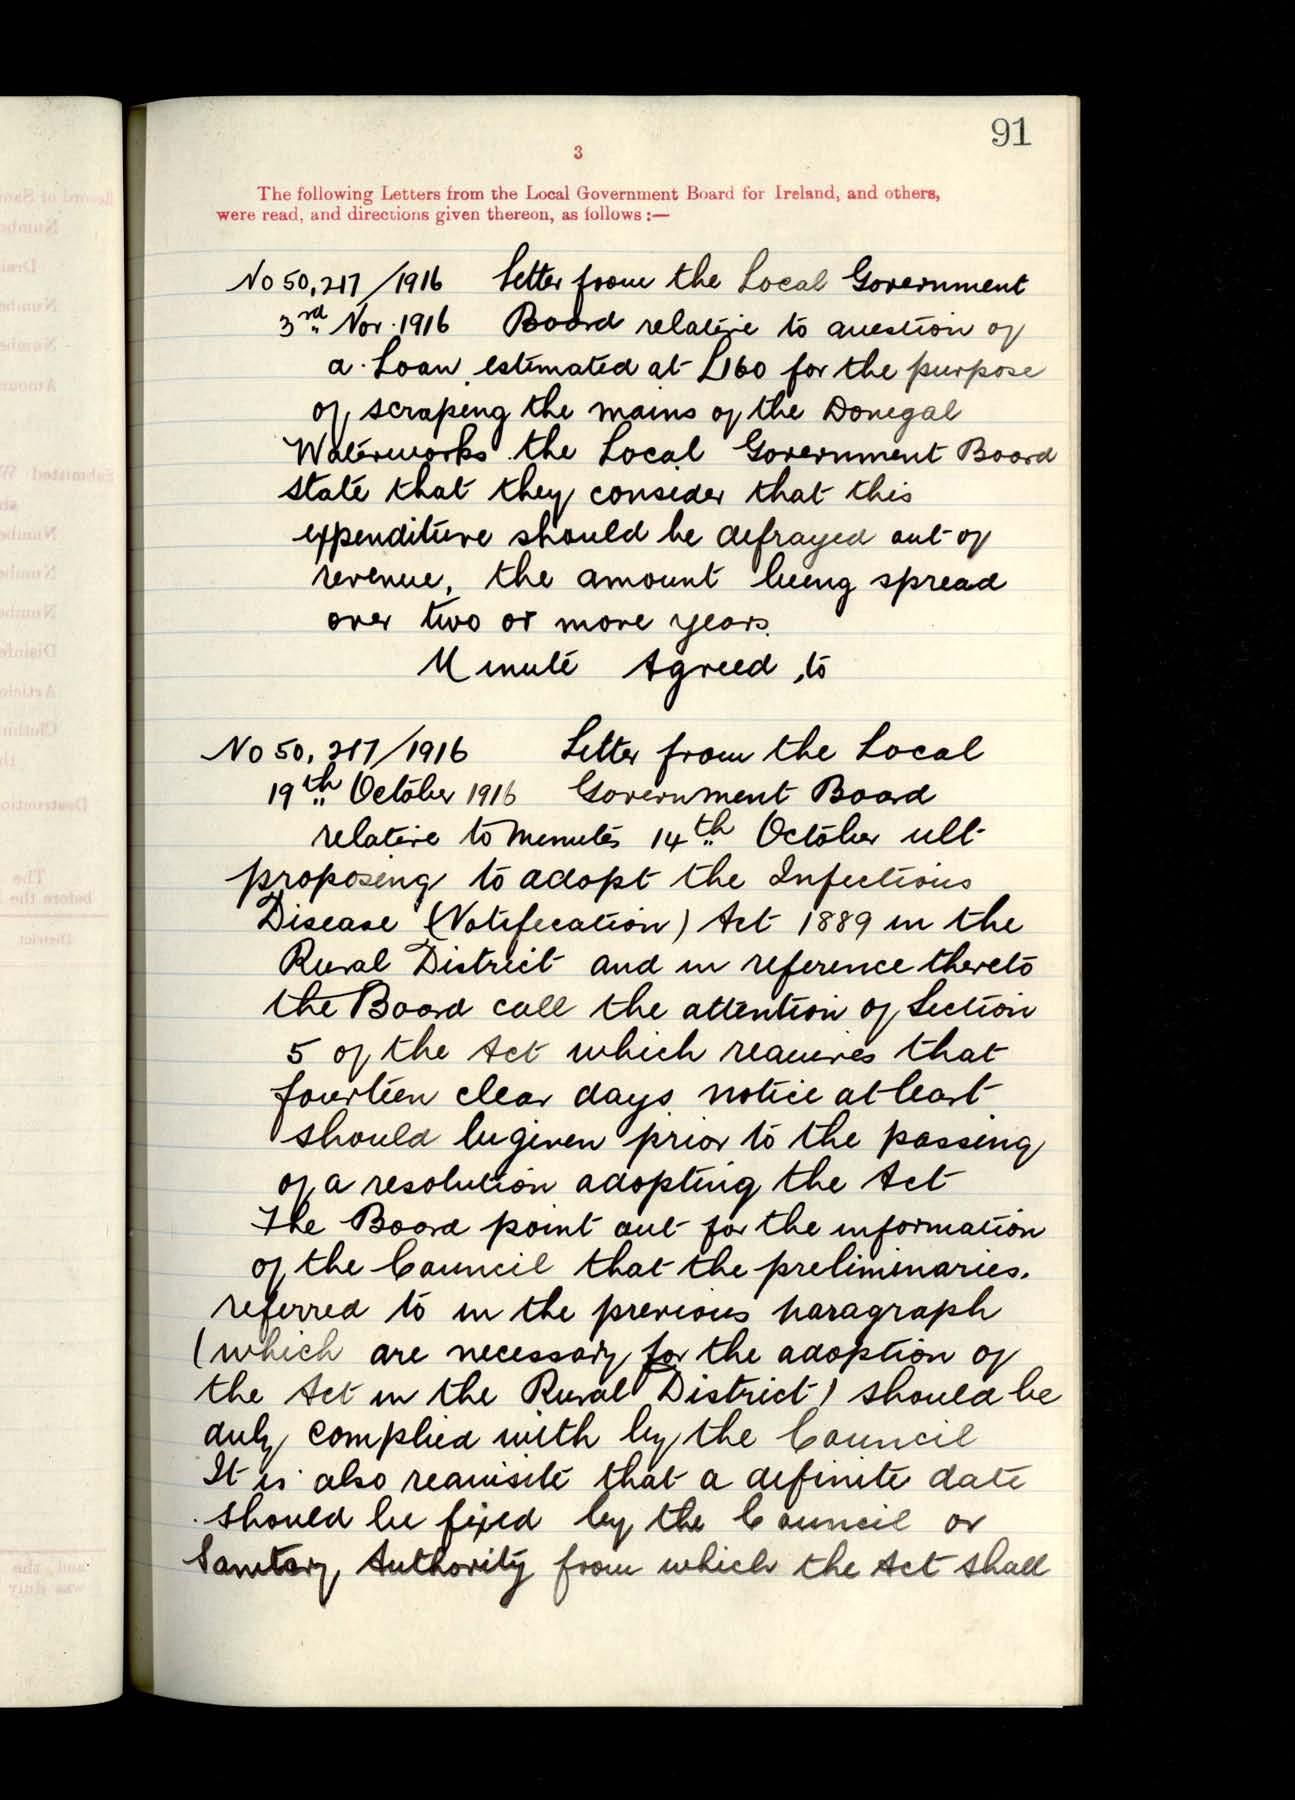 91
3
The following Letters from the Local Government Board for Ireland, and others,
were read, and directions given thereon, as follows :—
No 50,217/1916 Letter from the Local Government
3rd Nov. 1916 Board relative to question of
a Loan estimated at £160 for the purpose
of scraping the mains of the Donegal
Waterworks the Local Government Board
state that they consider that this
expenditure should be defrayed out of
revenue, the amount being spread
over two or more years.
Minute Agreed to
No 50,217/1916 Letter from the Local
19th October 1916 Government Board
relative to Minutes 14th October ult
proposing to adopt the Infectious
Disease (Notification) Act 1889 in the
Rural District and in reference thereto
the Board call the attention of Section
5 of the Act which requires that
fourteen clear days notice at least
should be given prior to the passing
of a resolution adopting the Act
The Board point out for the information
of the Council that the preliminaries.
referred to in the previous paragraph
(which are necessary for the adoption of
the Act in the Rural District) should be
duly complied with by the Council
It is also requisite that a definite date
should be fixed by the Council or
Sanitary Authority from which the Act shall